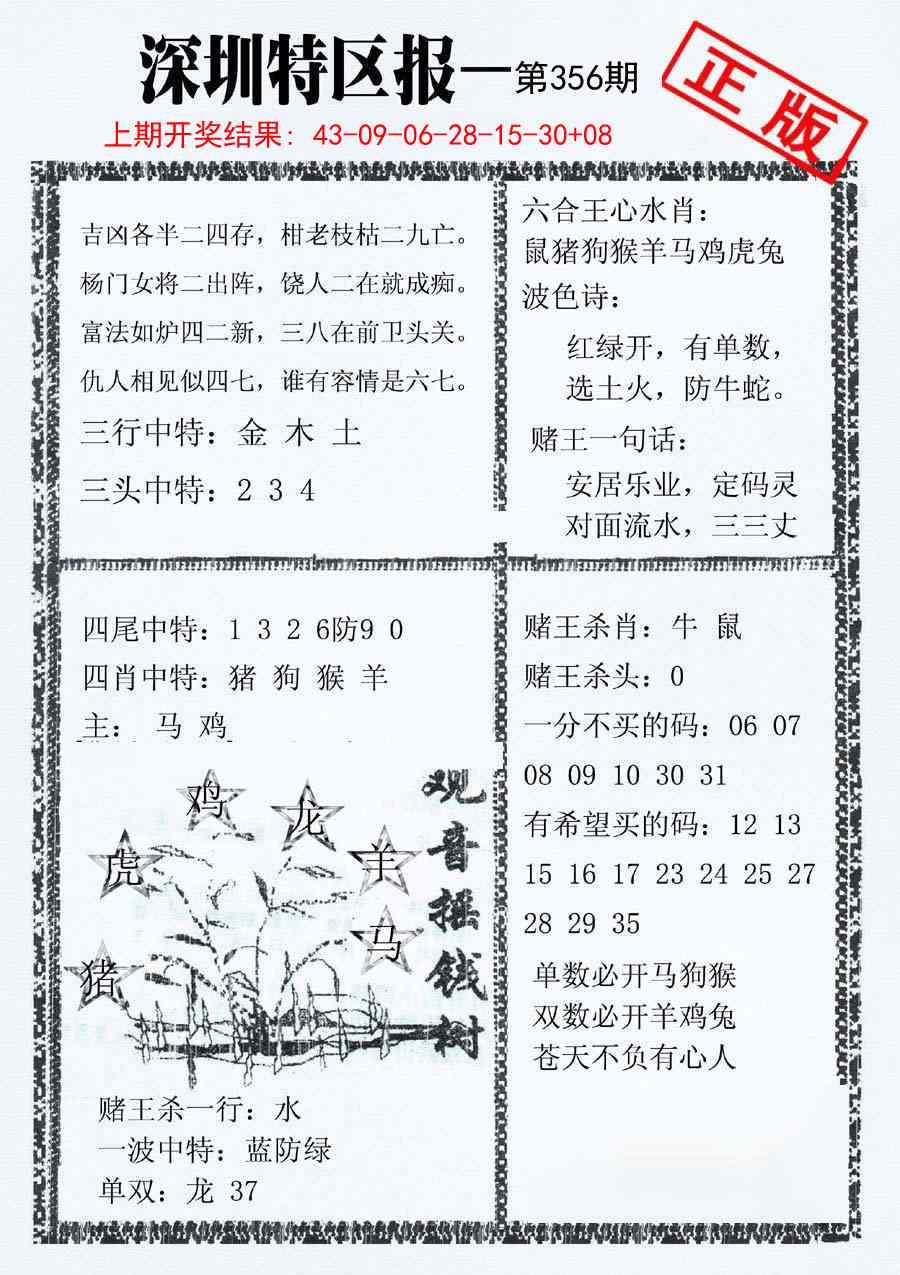 深圳特区报—第356期
正版
上期开奖结果: 43-09-06-28-15-30+08
吉凶各半二四存，柑老枝枯二九亡。
杨门女将二出阵，饶人二在就成痴。
富法如炉四二新，三八在前卫头关。
仇人相见似四七，谁有容情是六七。
三行中特：金 木 土
三头中特：2 3 4
六合王心水肖：
鼠猪狗猴羊马鸡虎兔
波色诗：
红绿开，有单数，
选土火，防牛蛇。
赌王一句话：
安居乐业，定码灵
对面流水，三三丈
四尾中特：1 3 2 6防9 0
四肖中特：猪 狗 猴 羊
主： 马 鸡
鸡
龙
虎
羊
马
猪
观音摇钱树
赌王杀一行：水
一波中特：蓝防绿
单双：龙 37
赌王杀肖：牛 鼠
赌王杀头：0
一分不买的码：06 07
08 09 10 30 31
有希望买的码：12 13
15 16 17 23 24 25 27
28 29 35
单数必开马狗猴
双数必开羊鸡兔
苍天不负有心人